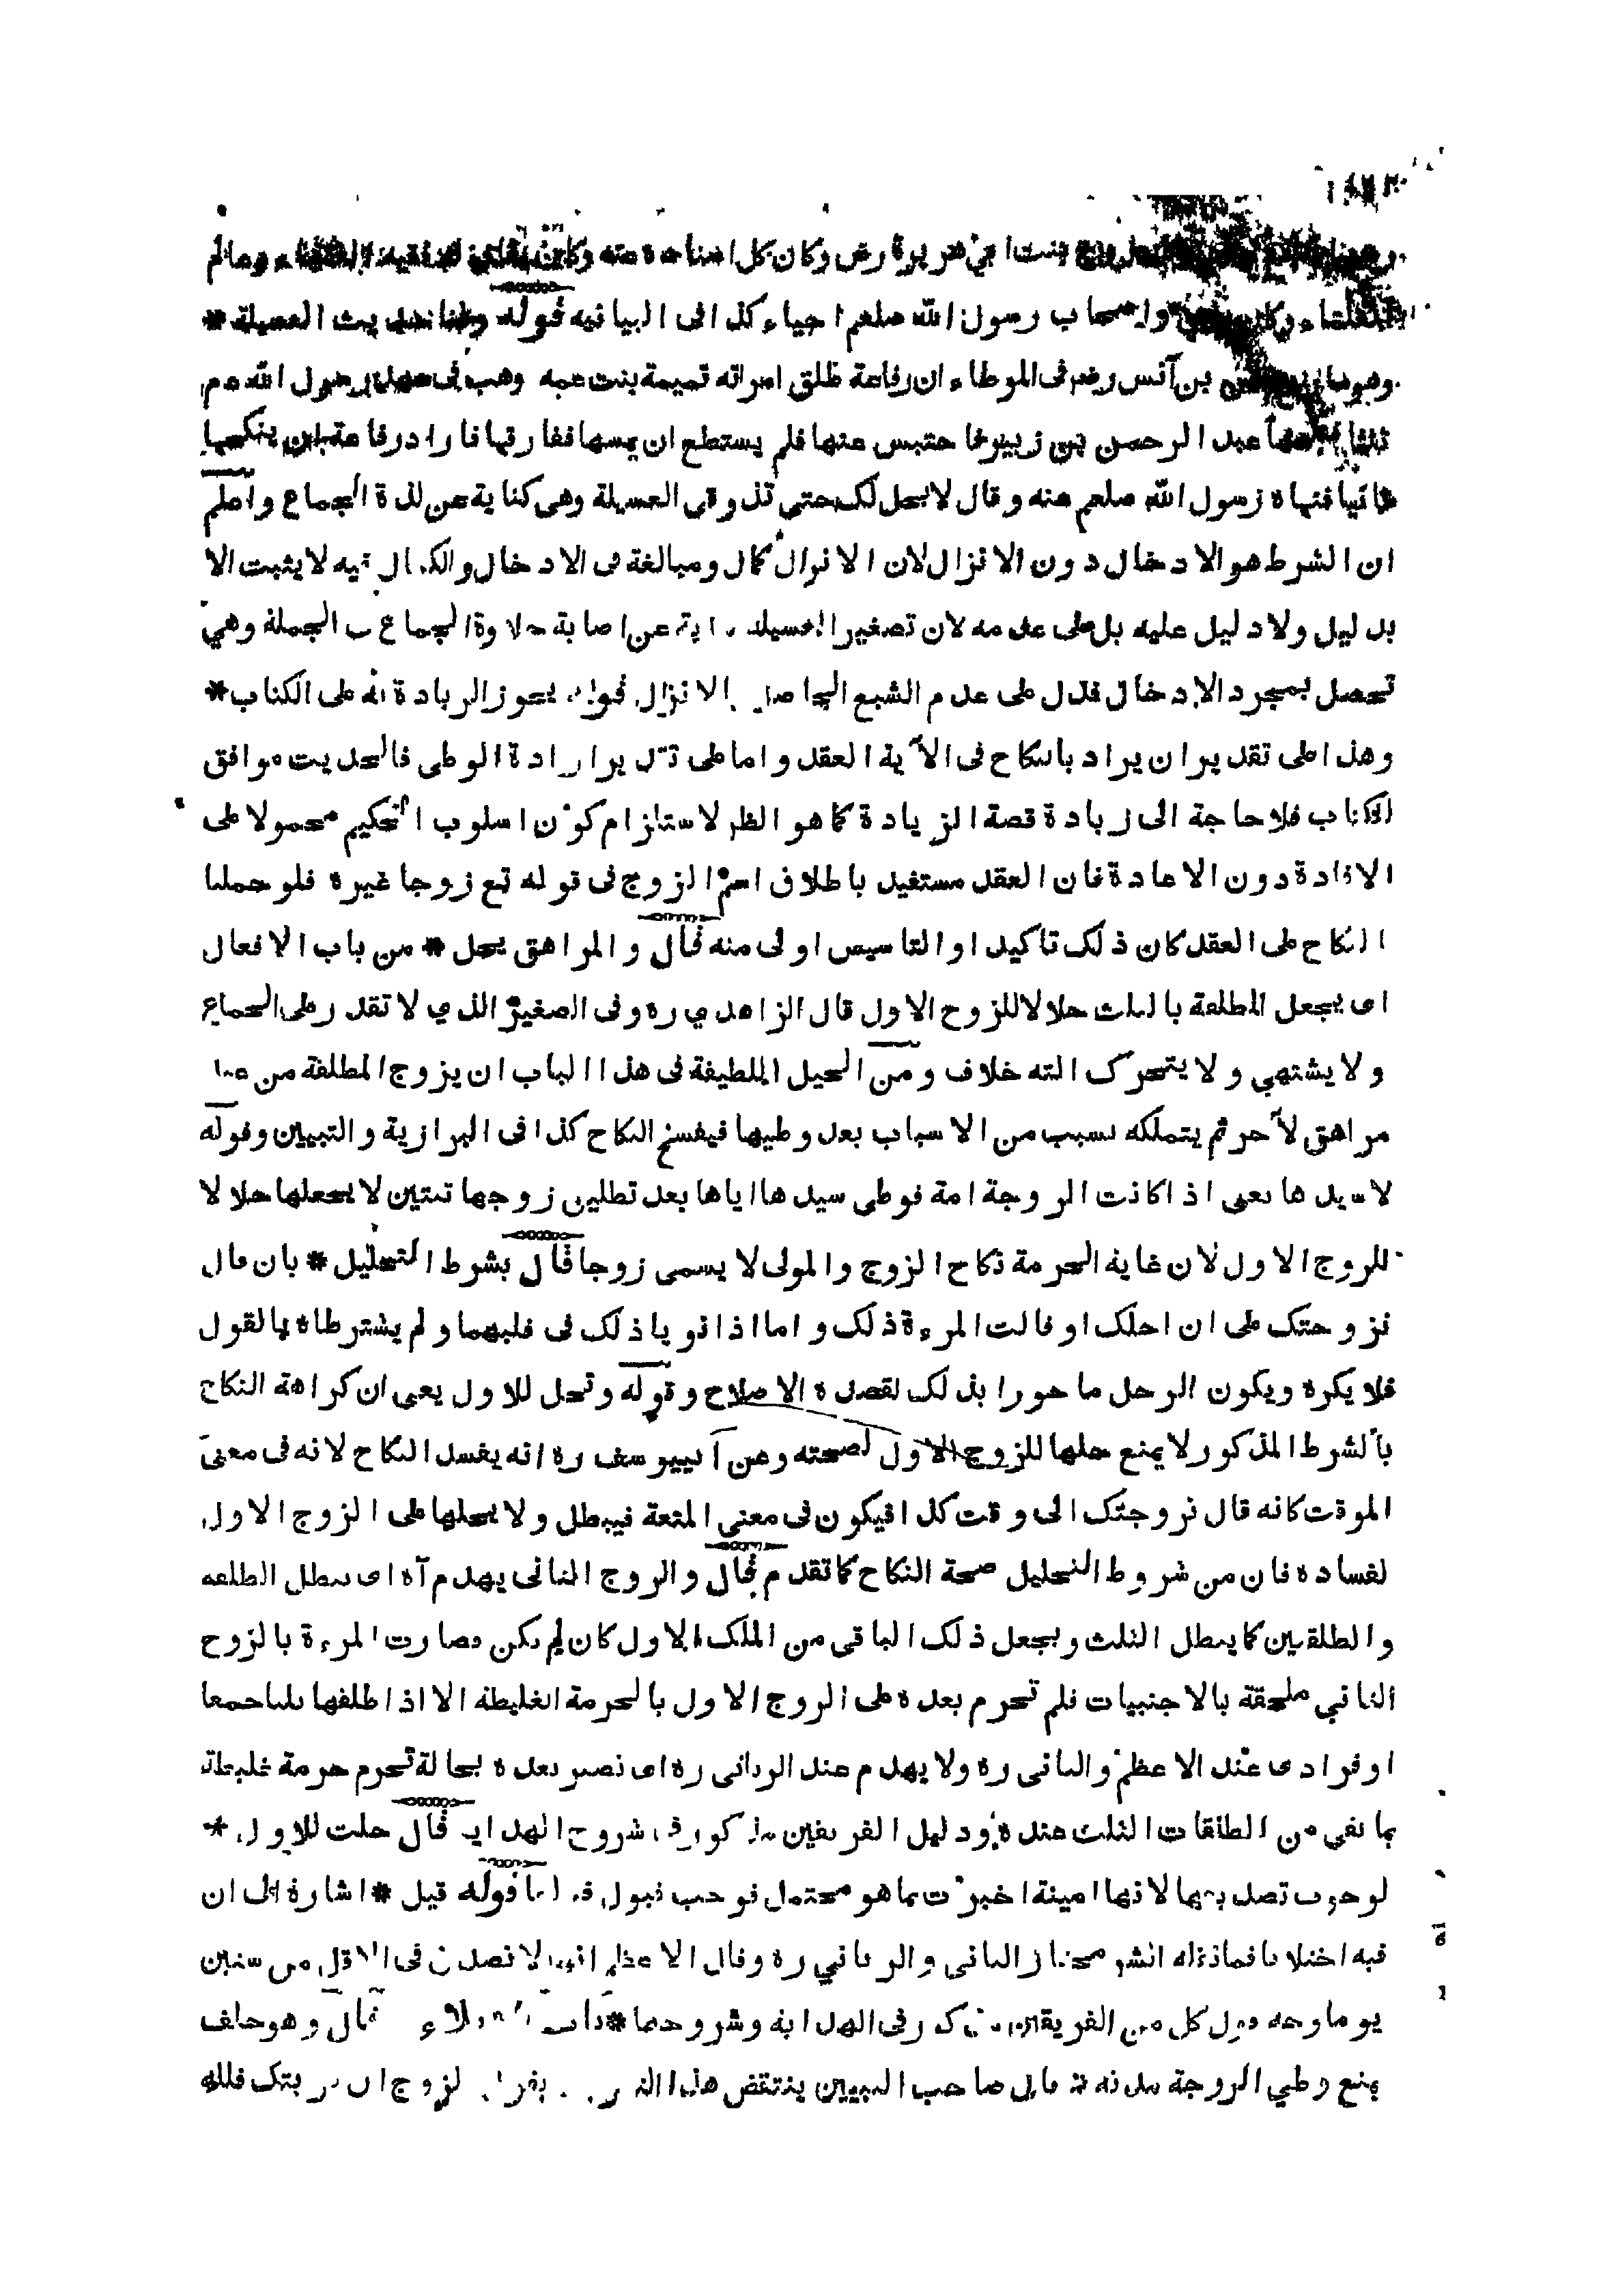 بنت ابي هريرة رض وكان كل اصنا حده منه وكان
واصحاب رسول الله صلعم احياء كذا في البيانيه قوله حديث العسيلة *
بن آنس رضر فى الموطاء ان رفاعة طلق امراته تميمة بنت عبه وهب فى عهد رسول الله عم
ثلثا عبد الرحمن بن زبير فاحتبس عنها فلم يستطع ان يمسها ففارقها فاراد رفاعة ان ينكحها
ثانيا فنهاه رسول الله صلعم عنه وقال لا يحل لك حتى تذوقى العسيلة وهى كناية عن لذة الجماع واعلم
ان الشرط هو الادخال دون الانزال لان الانزال كمال ومبالغة فى الادخال والكمال فيه لا يثبت الا
بدليل ولا دليل عليه بل على عدمه لان تصغير العسيلة عن اصابة حلاوة الجماع الجملة وهي
تحصل بمجرد الادخال فدل على عدم الشبع الحاصل الانزال قوله يجوز الزيادة به على الكتاب *
وهذا على تقدير ان يراد بالنكاح فى الآية العقد واما على تقدير ارادة الوطى فالحديث موافق
الكتاب فلا حاجة الى زيادة قصة الزيادة كما هو الظر لاستلزام كون اسلوب الحكيم محمولا على
الافادة دون الاعادة فان العقد مستفيد باطلاق اسم الزوج فى قوله تع زوجا غيره فلو حملنا
النكاح على العقد كان ذلك تاكيدا والتاسيس اولى منه قال والمراهق يحل * من باب الافعال
اى يجعل المطلقة بالثلث حلالا للزوج الاول قال الزاهدي ره وفى الصغير الذي لا تقدر على الجماع
ولا يشتهي ولا يتحرك الته خلاف ومن الحيل اللطيفة فى هذا الباب ان يزوج المطلقة من عبد
مراهق لآخر ثم يتملكه بسبب من الاسباب بعد وطيها فيفسخ النكاح كذا فى البزازية والتبيين وقوله
لا سيدها يعنى اذا كانت الزوجة امة فوطى سيدها اياها بعد تطليق زوجها ثنتين لا يجعلها حلالا
للزوج الاول لان غاية الحرمة نكاح الزوج والمولى لا يسمى زوجا قال بشرط التحليل * بان قال
تزوجتك على ان احلك او قالت المرءة ذلك واما اذا نويا ذلك فى قلبهما ولم يشترطاه بالقول
فلا يكره ويكون الرجل ماجورا بذلك لقصده الاصلاح وقوله وتحل للاول يعنى ان كراهة النكاح
بالشرط المذكور لا يمنع حلها للزوج الاول لصحته وعن ابييوسف ره انه يفسد النكاح لانه فى معنى
الموقت كانه قال تزوجتك الى وقت كذا فيكون فى معنى المتعة فيبطل ولا يحلها على الزوج الاول
لفساده فان من شروط التحليل صحة النكاح كما تقدم قال والزوج الثانى يهدم آه اى يبطل الطلقة
والطلقتين كما يبطل الثلث ويجعل ذلك الباقى من الملك الاول كان لم يكن وصارت المرءة بالزوج
الثاني ملحقة بالاجنبيات فلم تحرم بعده على الزوج الاول بالحرمة الغليظة الا اذا طلقها ثلثا جمعا
او فرادى عند الاعظم والثانى ره ولا يهدم عند الربانى ره اى تصير بعده بحالة تحرم حرمة غليظة
بما بقى من الطلقات الثلث عنده ودليل الفريقين مذكور فى شروح الهداية قال حلت للاول *
لوجوب تصديقها لانها امينة اخبرت بما هو محتمل فوجب قبول قولها قوله قيل * اشارة الى ان
فيه اختلافا مختار الثانى والربانى ره وقال الاعظم انها لا تصدق فى الاقل من ستين
يوما وجه قول كل من الفريقين مذكور فى الهداية وشروحها * باب الايلاء قال وهو حلف
يمنع وطي الزوجة قال صاحب التبيين ينتقض هذا الزوج ان قربتك فلله